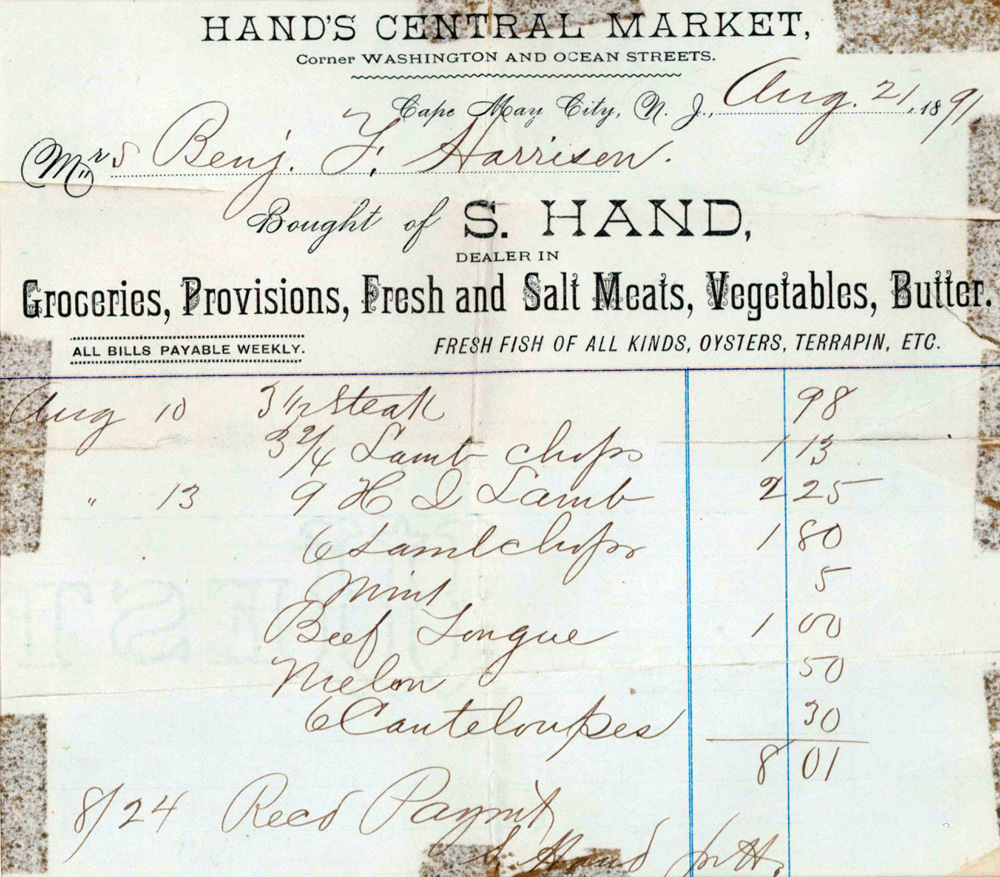 HAND'S CENTRAL MARKET,
Corner WASHINGTON AND OCEAN STREETS.
Cape May City, N. J., Aug. 21, 1891
Mrs Benj. F. Harrison.
Bought of S. HAND,
DEALER IN
Groceries, Provisions, Fresh and Salt Meats, Vegetables, Butter.
ALL BILLS PAYABLE WEEKLY. FRESH FISH OF ALL KINDS, OYSTERS, TERRAPIN, ETC.
Aug 10 3 1/2 Steak 98
3 2/4 Lamb chops 1 13
" 13 9 H Q Lamb 2 25
6 Lamb chops 1 80
Mint 5
Beef Tongue 1 00
Melon 50
6 Canteloupes 30
8 01
8/24 Recd Paymt
S. Hand